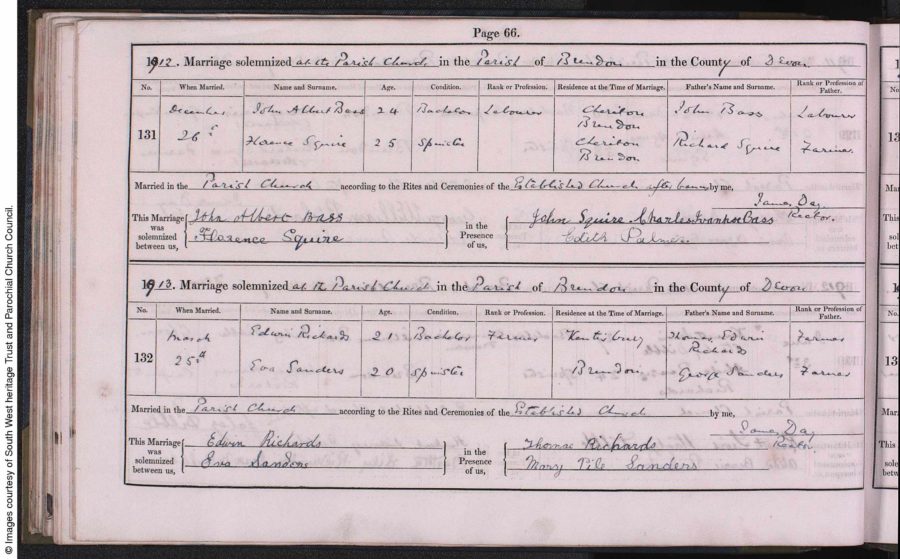 Page 66.
1912. Marriage solemnized at the Parish Church in the Parish of Brendon in the County of Devon
No. When Married. Name and Surname. Age. Condition. Rank or Profession. Residence at the Time of Marriage. Father's Name and Surname. Rank or Profession of Father.
131 December 26th John Albert Bass 24 Bachelor Labourer Cheriton Brendon John Bass Labourer
Florence Squire 25 Spinster Cheriton Brendon Richard Squire Farmer
Married in the Parish Church according to the Rites and Ceremonies of the Established Church after banns by me,
James Day
Rector.
This Marriage was solemnized between us, John Albert Bass
Florence Squire
in the Presence of us, John Squire Charles Bass
Edith Palmer
1913. Marriage solemnized at the Parish Church in the Parish of Brendon in the County of Devon
No. When Married. Name and Surname. Age. Condition. Rank or Profession. Residence at the Time of Marriage. Father's Name and Surname. Rank or Profession of Father.
132 March 25th Edwin Richards 21 Bachelor Farmer Kentisbury Thomas Edwin Richards Farmer
Eva Sanders 20 Spinster Brendon George Sanders Farmer
Married in the Parish Church according to the Rites and Ceremonies of the Established Church by me,
James Day
Rector.
This Marriage was solemnized between us, Edwin Richards
Eva Sanders
in the Presence of us, Thomas Richards
Mary Pile Sanders
© Images courtesy of South West heritage Trust and Parochial Church Council.